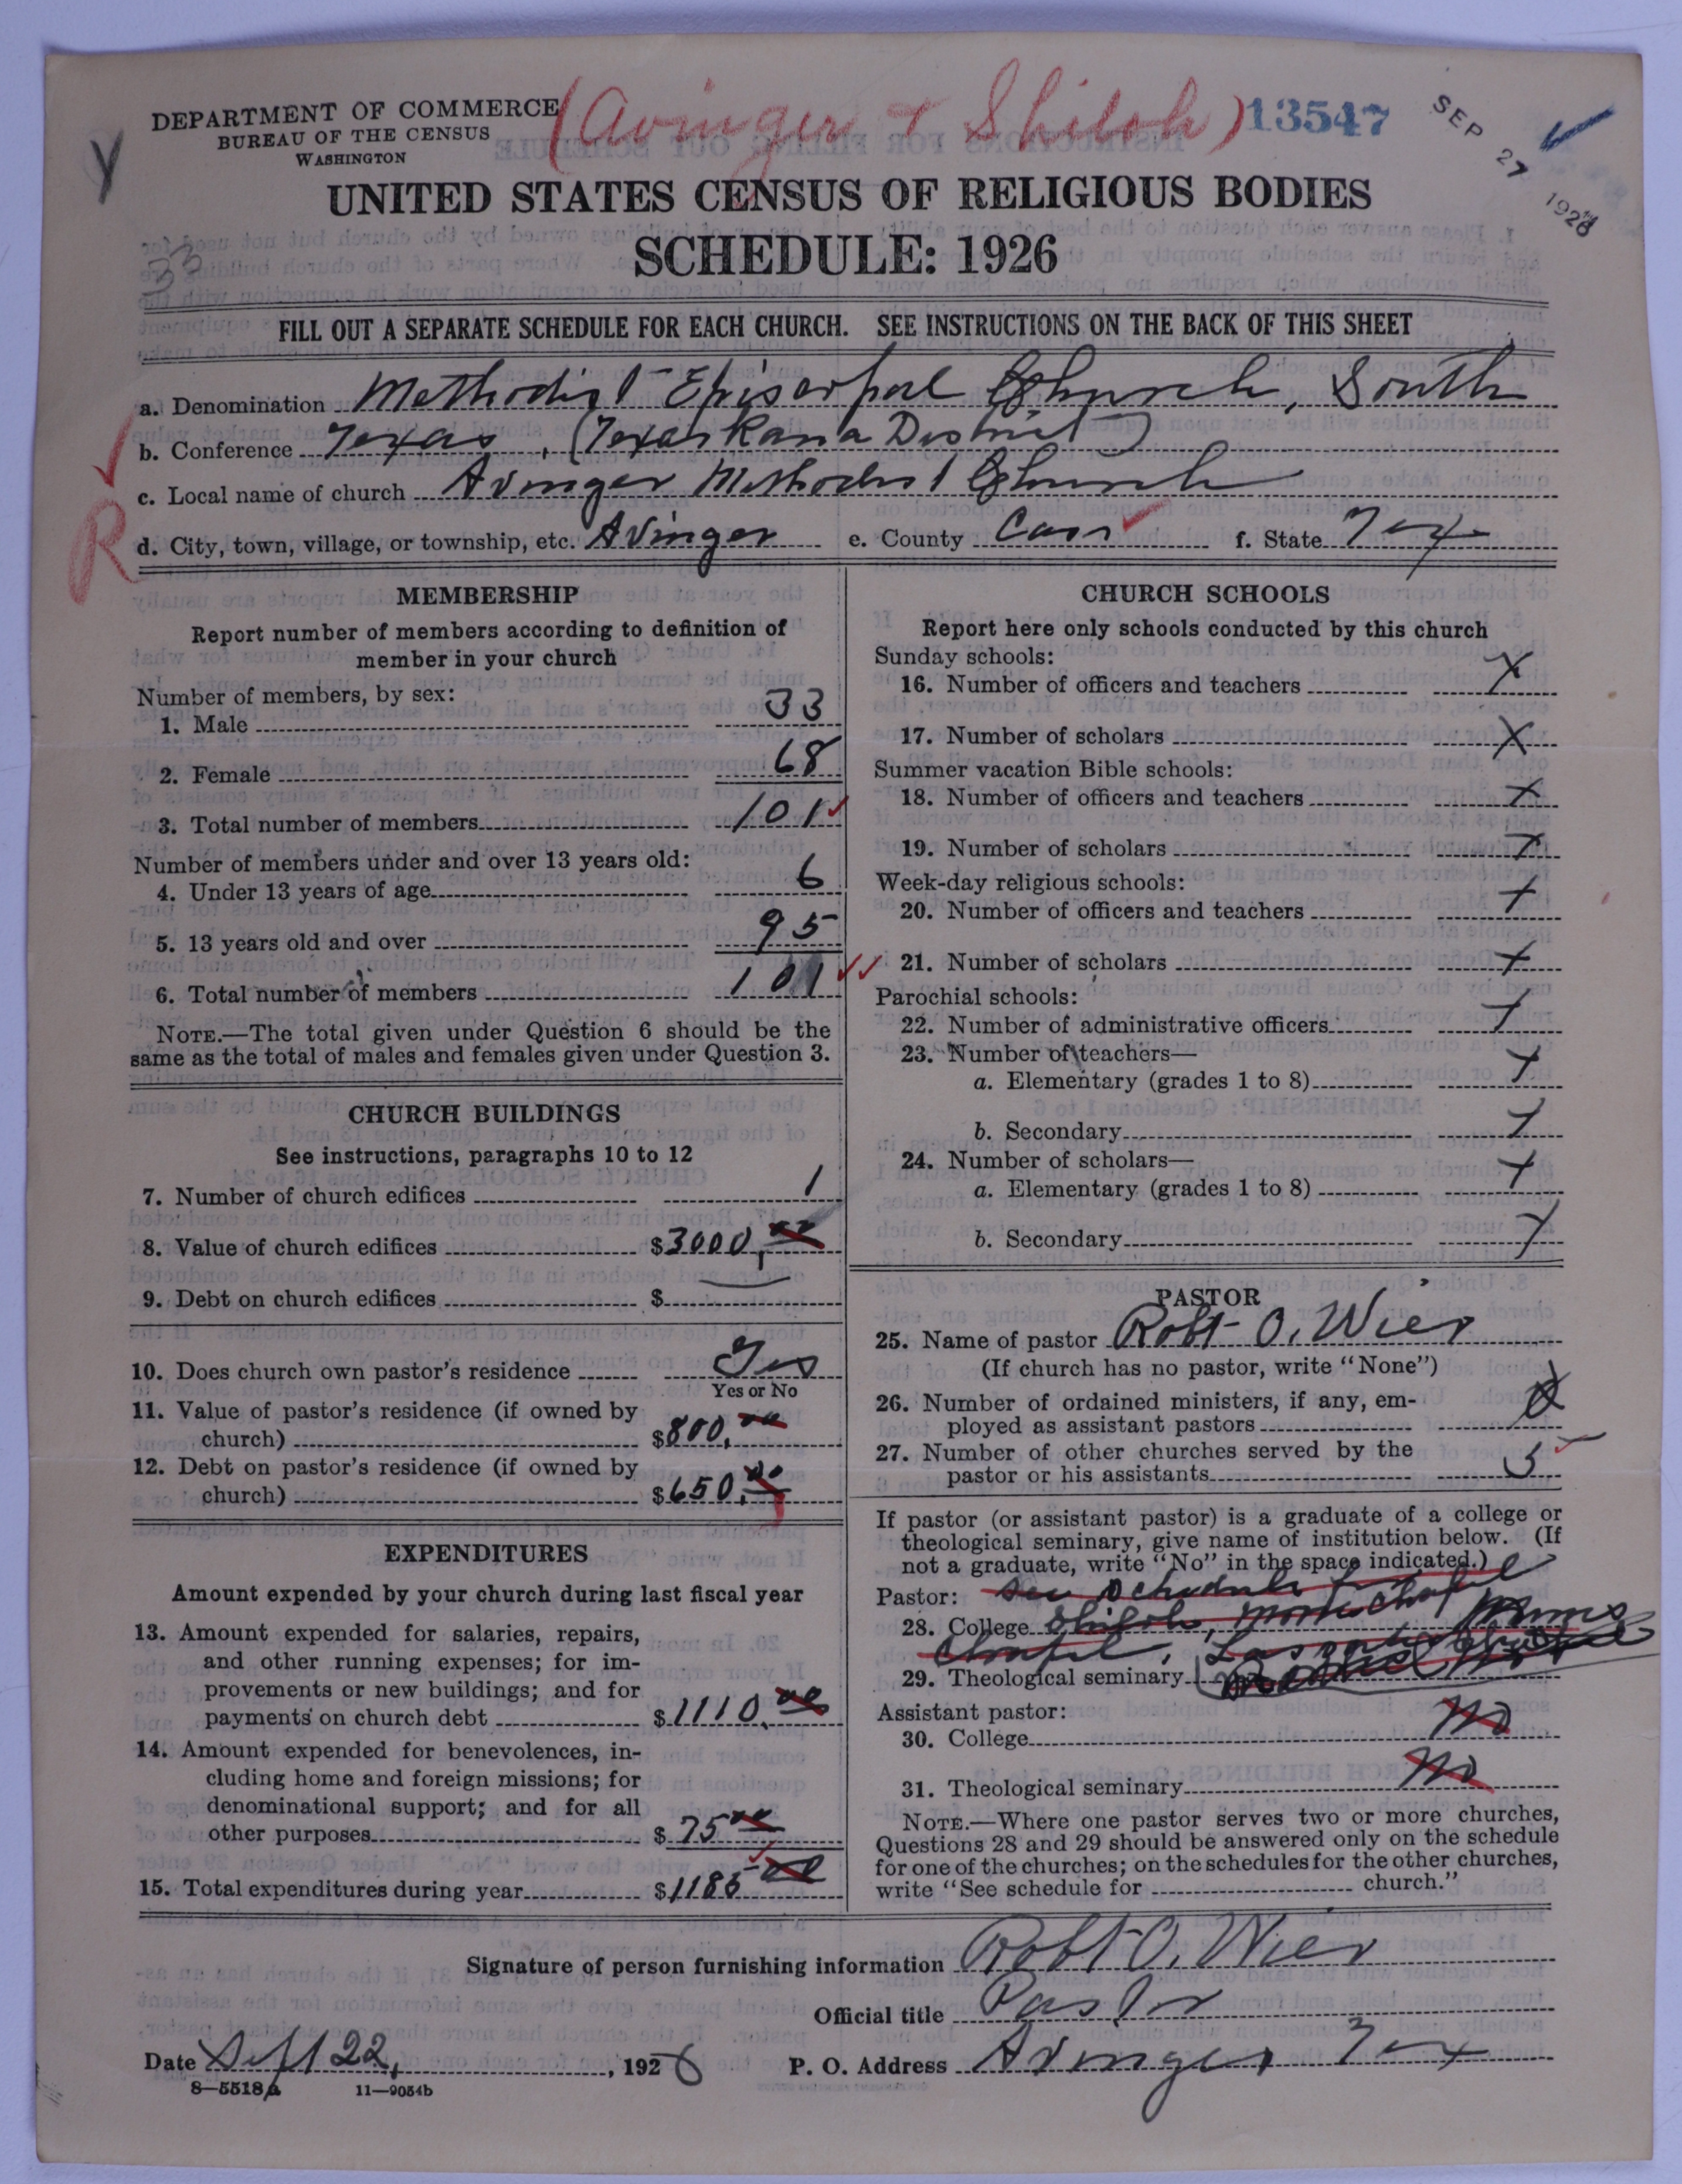 (Avinger & Shiloh) 13547
SEP 27 1926
DEPARTMENT OF COMMERCE
BUREAU OF THE CENSUS
WASHINGTON
UNITED STATES CENSUS OF RELIGIOUS BODIES
SCHEDULE: 1926
33
FILL OUT A SEPARATE SCHEDULE FOR EACH CHURCH. SEE INSTRUCTIONS ON THE BACK OF THIS SHEET
a. Denomination Methodist Episcopal Church, South
b. Conference Texas, (Texarkana District)
c. Local name of church Avinger Methodist Church
R
d. City, town, village, or township, etc. Avinger e. County Cass f. State Tex
MEMBERSHIP
Report number of members according to definition of
member in your church
Number of members, by sex:
1. Male 33
2. Female 68
3. Total number of members 101
Number of members under and over 13 years old:
4. Under 13 years of age 6
5. 13 years old and over 95
6. Total number of members 101
NOTE.—The total given under Question 6 should be the
same as the total of males and females given under Question 3.
CHURCH BUILDINGS
See instructions, paragraphs 10 to 12
7. Number of church edifices 1
8. Value of church edifices $3000,00
9. Debt on church edifices $
10. Does church own pastor's residence Yes
Yes or No
11. Value of pastor's residence (if owned by
church) $800.00
12. Debt on pastor's residence (if owned by
church) $650.00
EXPENDITURES
Amount expended by your church during last fiscal year
13. Amount expended for salaries, repairs,
and other running expenses; for im-
provements or new buildings; and for
payments on church debt $1110.00
14. Amount expended for benevolences, in-
cluding home and foreign missions; for
denominational support; and for all
other purposes $75 00
15. Total expenditures during year $1185 00
CHURCH SCHOOLS
Report here only schools conducted by this church
Sunday schools:
16. Number of officers and teachers X
17. Number of scholars X
Summer vacation Bible schools:
18. Number of officers and teachers X
19. Number of scholars X
Week-day religious schools:
20. Number of officers and teachers X
21. Number of scholars X
Parochial schools:
22. Number of administrative officers X
23. Number of teachers—
a. Elementary (grades 1 to 8) X
b. Secondary X
24. Number of scholars—
a. Elementary (grades 1 to 8) X
b. Secondary X
PASTOR
25. Name of pastor Robt O. Wier
(If church has no pastor, write "None")
26. Number of ordained ministers, if any, em-
ployed as assistant pastors
27. Number of other churches served by the
pastor or his assistants 5
If pastor (or assistant pastor) is a graduate of a college or
theological seminary, give name of institution below. (If
not a graduate, write "No" in the space indicated.)
Pastor: See Schedule for
28. College Shiloh, Chapel Mims
Chapel,
29. Theological seminary
Assistant pastor:
30. College No
31. Theological seminary No
NOTE.—Where one pastor serves two or more churches,
Questions 28 and 29 should be answered only on the schedule
for one of the churches; on the schedules for the other churches,
write "See schedule for church."
Signature of person furnishing information Robt O. Wier
Official title Pastor
Date Sept 22, 1926 P. O. Address Avinger Tex
8—5518a 11—9054b